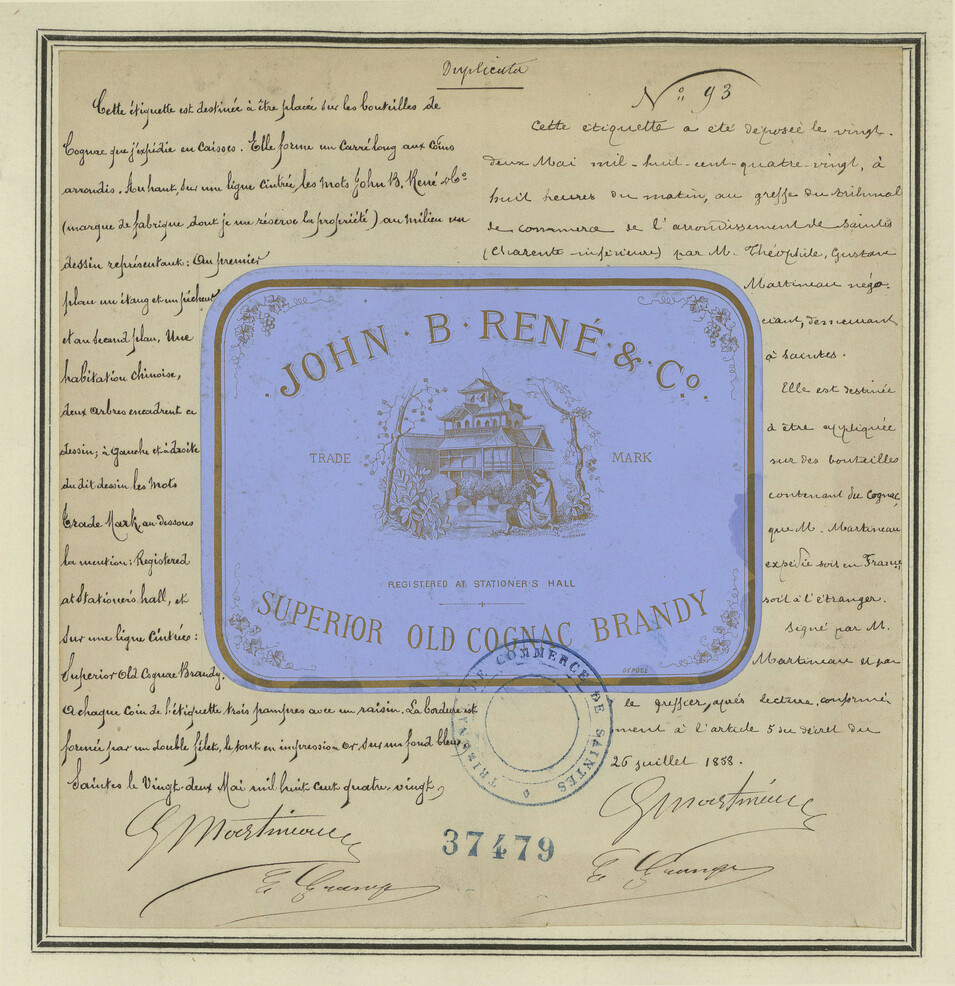 Duplicata
Cette étiquette est destinée à être placée sur les bouteilles de
Cognac que j'expédie en caisses. Elle forme un carré long aux coins
arrondis. Au haut, sur une ligne cintrée, les mots John B. René & Co
(marque de fabrique, dont je me réserve la propriété) au milieu un
dessin représentant: Au premier
plan un étang et un pêcheur
et au second plan, Une
habitation chinoise,
deux arbres encadrent ce
dessin; à gauche et à droite
du dit dessin les mots
Trade Mark, au dessous
la mention: Registered
at Stationer's hall, et
sur une ligne cintrée:
Superior Old Cognac Brandy.
A chaque coin de l'étiquette trois pampres avec un raisin. La bordure est
formée par un double filet, le tout en impression or sur un fond bleu,
Saintes le Vingt-deux Mai mil huit cent quatre-vingt,
G Martineau
E Grange
No 93
Cette étiquette a été déposée le vingt-
deux Mai mil-huit-cent-quatre-vingt, à
huit heures du matin, au greffe du tribunal
de commerce de l'arrondissement de Saintes
(Charente-inférieure) par M. Théophile, Gustave
Martineau négo-
ciant, demeurant
à Saintes.
Elle est destinée
à être appliquée
sur des bouteilles
contenant du Cognac,
que M. Martineau
expédie soit en France
soit à l'étranger.
Signé par M.
Martineau et par
le greffier, après lecture, conformé-
ment à l'article 5 du décret du
26 juillet 1858.
G Martineau
E Grange
JOHN · B · RENÉ · & · Co.
TRADE MARK
REGISTERED AT STATIONER'S HALL
SUPERIOR OLD COGNAC BRANDY
DEPOSÉ
TRIBUNAL DE COMMERCE DE SAINTES
37479